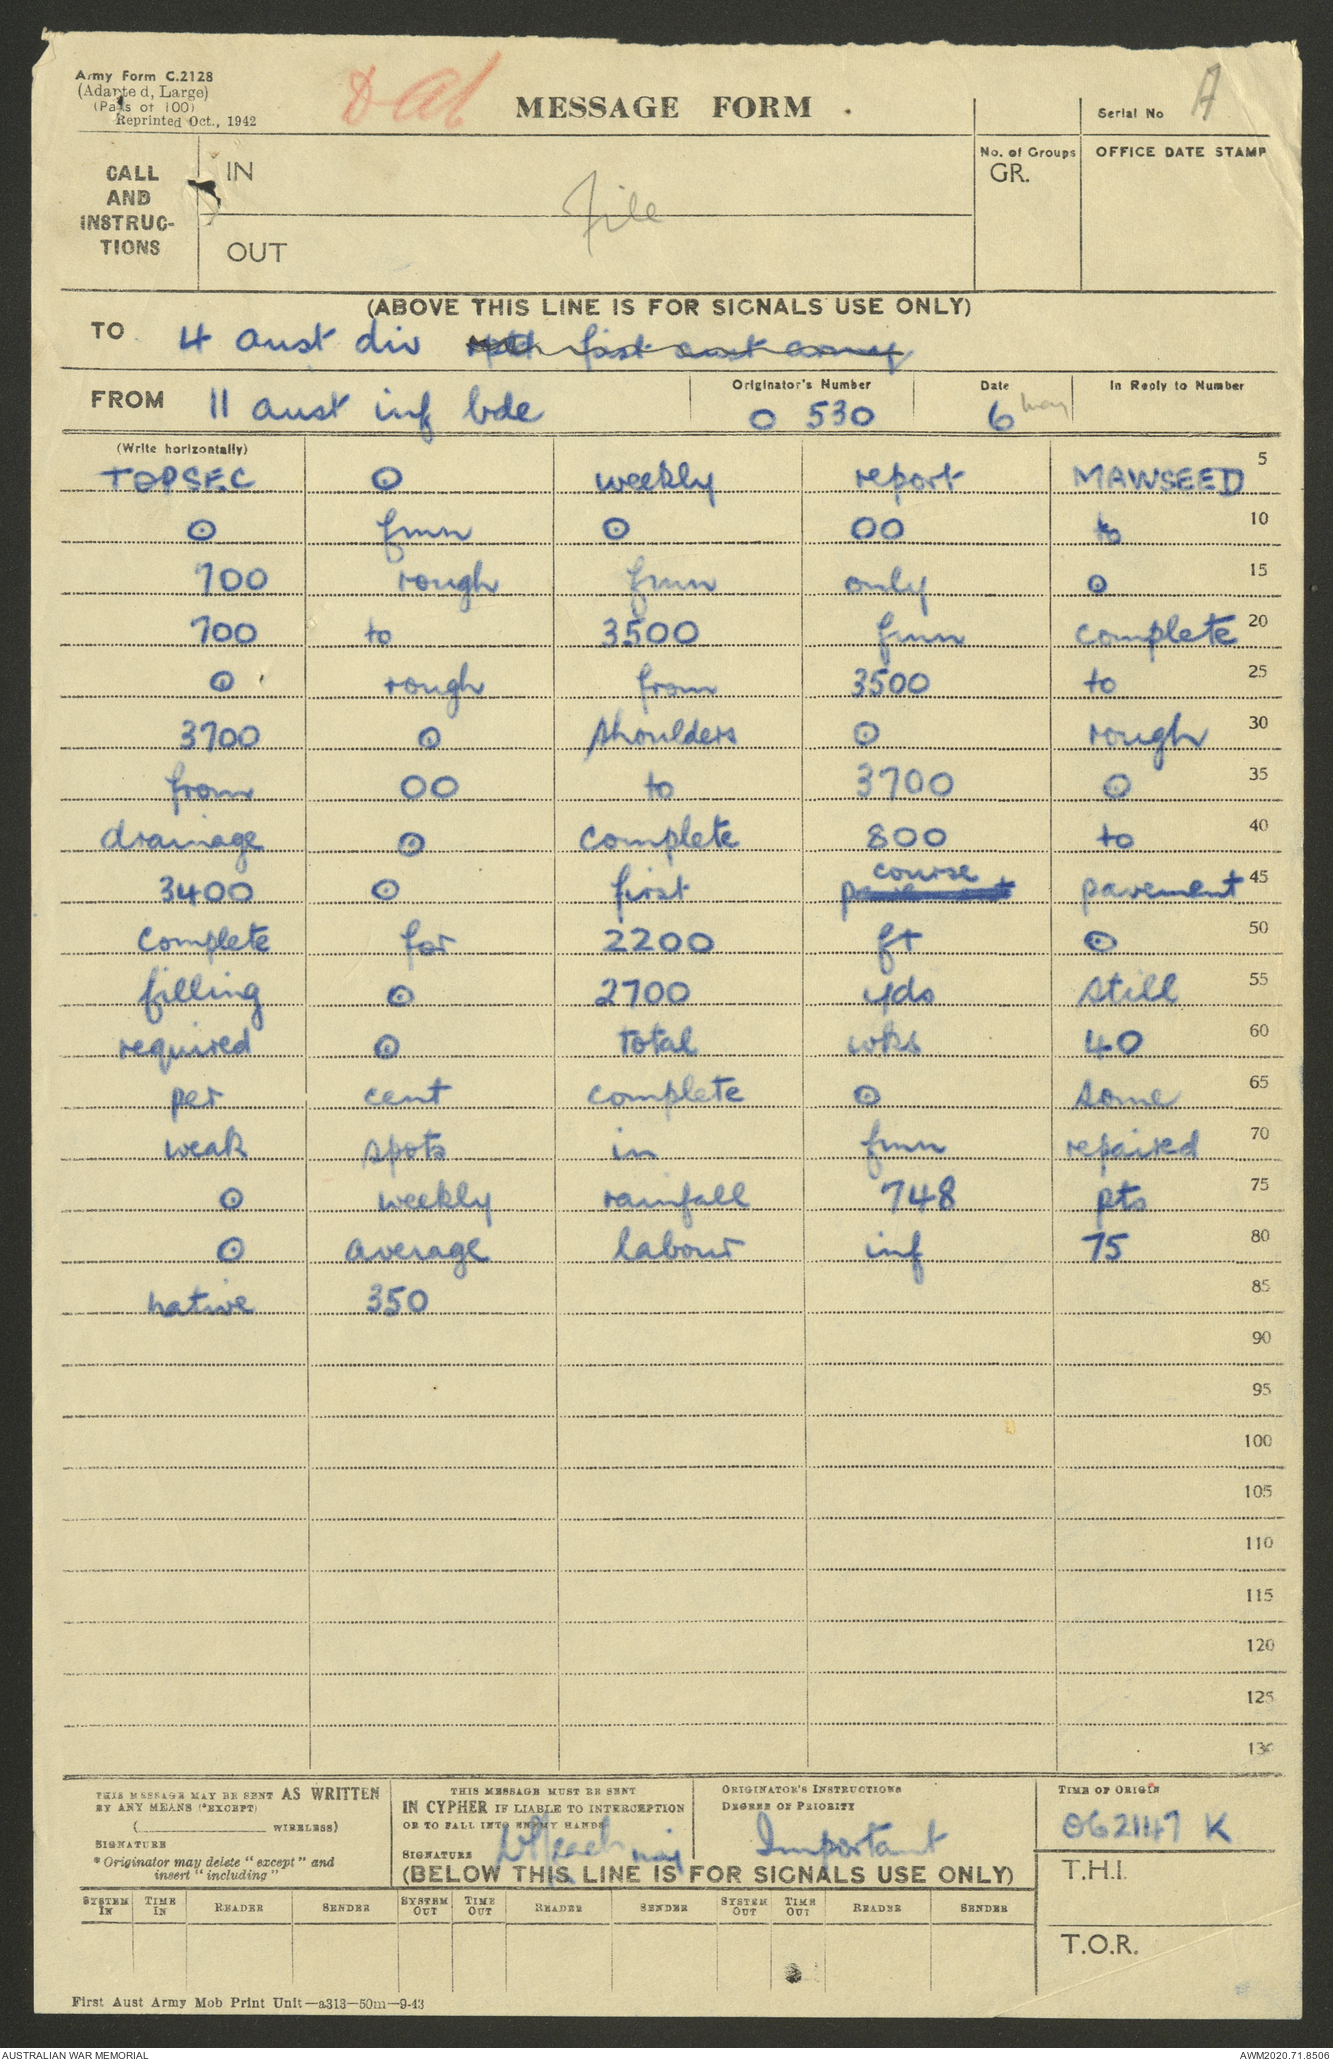 Army Form C.2128
(Adapted, Large)
(Pads of 100)
Reprinted Oct., 1942
MESSAGE FORM
Serial No A
CALL
AND
INSTRUC-
TIONS
IN
File
OUT
No. of Groups
GR.
OFFICE DATE STAMP
(ABOVE THIS LINE IS FOR SIGNALS USE ONLY)
TO 4 aust div first aust army
FROM 11 aust inf bde
Originator's Number
O 530
Date
6 may
In Reply to Number
(Write horizontally)
TOPSEC ⊙ weekly report MAWSEED 5
⊙ fmn ⊙ 00 to 10
700 rough fmn only ⊙ 15
700 to 3500 fmn complete 20
⊙ rough from 3500 to 25
3700 ⊙ shoulders ⊙ rough 30
from 00 to 3700 ⊙ 35
drainage ⊙ complete 800 to 40
3400 ⊙ first pavement course pavement 45
complete for 2200 ft ⊙ 50
filling ⊙ 2700 yds still 55
required ⊙ total wks 40 60
per cent complete ⊙ some 65
weak spots in fmn repaired 70
⊙ weekly rainfall 748 pts 75
⊙ average labour inf 75 80
native 350 85
90
95
100
105
110
115
120
125
130
THIS MESSAGE MAY BE SENT AS WRITTEN
BY ANY MEANS (*EXCEPT)
( WIRELESS)
SIGNATURE
* Originator may delete "except" and
insert "including"
THIS MESSAGE MUST BE SENT
IN CYPHER IF LIABLE TO INTERCEPTION
OR TO FALL INTO ENEMY HANDS
SIGNATURE maj
ORIGINATOR'S INSTRUCTIONS
DEGREE OF PRIORITY
Important
TIME OF ORIGIN
062147 K
(BELOW THIS LINE IS FOR SIGNALS USE ONLY)
T.H.I.
SYSTEM IN TIME IN READER SENDER SYSTEM OUT TIME OUT READER SENDER SYSTEM OUT TIME OUT READER SENDER
T.O.R.
First Aust Army Mob Print Unit—a313—50m—9-43
AUSTRALIAN WAR MEMORIAL
AWM2020.71.8506